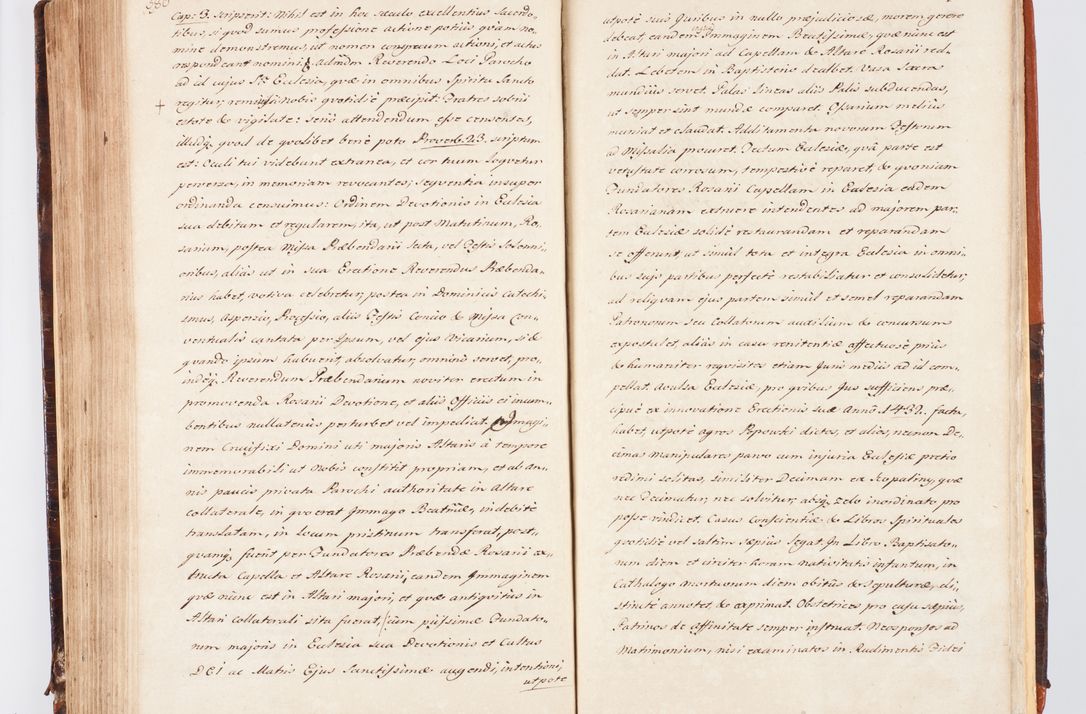 380
Cap: 3. scripserit: Nihil est in hoc sæculo excellentius Sacerdo„
tibus, si quod sumus professione actione potius quam no„
mine demonstremus, ut nomen congruum actioni, et actus
respondeant nomini, admdem Reverendo Loci Parocho
ad id cujus Sta Ecclesia, quæ in omnibus Spiritu Sancto
regitur, reminisci nobis quotidie præcipit. Fratres sobrii
estote & vigilate: seriò attendendum esse censentes,
illudq. quod de quolibet benè poto Proverb: 23. scriptum
est: Oculi tui videbunt extranea, et cor tuum loquetur
perversa, in memoriam revocantes; sequentia insuper
ordinanda censuimus: Ordinem Devotionis in Ecclesia
sua debitum et regularem, ita, ut post Matutinum, Ro„
sarium, postea Missa Præbendarii lecta, vel Festis Solenni„
oribus, aliàs ut in sua Erectione Reverendus Præbenda„
rius habet, votiva celebretur, postea in Dominicis Catechi„
smus, Aspersio, Processio, aliis Festis Concio & Missa Con„
ventualis cantata per Ipsum, vel ejus Vicarium, si &
quando ipsum habuerit, absolvatur, omninò servet, pro„
indeq. Reverendum Præbendarium noviter erectum in
promovenda Rosarii Devotione, et aliis Officiis ei incum„
bentibus nullatenus perturbet vel impediat. Immagi„
nem Crucifixi Domini uti majoris Altaris à tempore
immemorabili ut Nobis constitit propriam, et ab an„
nis paucis privata Parochi authoritate in Altare
collaterale, in quo erat Immago Beatmæ, indebitè
translatam, in locum pristinum transferat, post„
quamq. fuerit per Fundatores Præbendæ Rosarii ex„
tructa Capella et Altare Rosarii, eandem Immaginem
quæ nunc est in Altari majori, et quæ antiquitus in
Altari collaterali sita fuerat, cum piissimæ Fundato„
rum majoris in Ecclesia sua Devotionis et Cultus
DEI ac Matris Ejus Sanctissimæ augendi, intentioni,
utpote
utpotè suis Juribus in nullo præjudiciosæ, morem gerere
debeat, eandem Immaginem Beatissimæ, quæ nunc est
in Altari majori ad Capellam & Altare Rosarii red„
dat. Lebetem in Baptisterio dealbet. Vasa Sacra
mundius servet. Palas lineas aliis Palis subducendas,
ut semper sint mundæ comparet. Ossarium melius
muniat et claudat. Additamenta novorum Festorum
ad Missalia procuret. Tectum Ecclesiæ, quâ parte est
vetustate corrosum, tempestivè reparet, & quoniam
Fundatores Rosarii Capellam in Ecclesia eadem
Rosarianam extruere intendentes ad majorem par„
tem Ecclesiæ solidè restaurandam et reparandam
se offerunt, ut simul tota et integra Ecclesia in omni„
bus suis partibus perfectè restabiliatur et consolidetur,
ad reliquam ejus partem simul et semel reparandam
Patronorum seu Collatorum auxilium & concursum
expostulet, aliàs in casu renitentiæ affectuosè prius
& humaniter requisitos etiam Juris mediis ad id com„
pellat. Avulsa Ecclesiæ, pro quibus Jus sufficiens præ„
cipuè ex innovatione Erectionis suæ Anno 1432. facta,
habet, utpotè agros Popowski dictos, et alios, necnon De„
cimas manipulares parvo cum injuria Ecclesiæ pretio
redimi solitas, similiter Decimam ex Scopaliny, quæ
nec Decimatur, nec solvitur, absq. zelo inordinato pro
posse vindicet. Casus Conscientiæ & Libros Spirituales
quotidiè vel saltim sæpius legat. In Libro Baptisato„
rum diem et circiter horam nativitatis infantum, in
Cathalogo mortuorum diem obitûs & sepulturæ, di„
stinctè annotet, & exprimat. Obstetrices pro casu sæpius,
Patrinos de affinitate semper instruat. Neosponsos ad
Matrimonium, nisi examinatos in Rudimentis Fidei